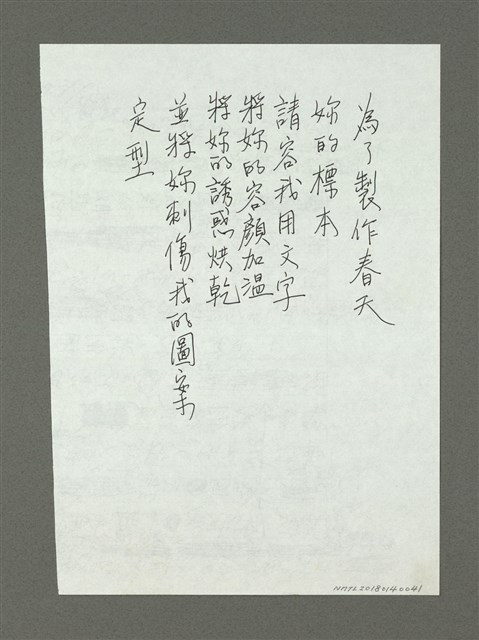 為了製作春天
妳的標本
請容我用文字
將妳的容顏加溫
將妳的誘惑烘乾
並將妳刺傷我的圖案
定型
NMTL20180140041